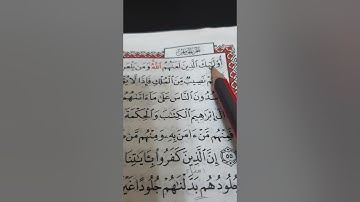 أُوْلَٰٓئِكَ ٱلَّذِينَ لَعَنَهُمُ ٱللَّهُ وَمَن يَلْعَنِ
نَصِيبٌ مِّنَ ٱلْمُلْكِ فَإِذًا لَّا
سُدُونَ ٱلنَّاسَ عَلَىٰ مَآ ءَاتَىٰهُمُ
إِبْرَٰهِيمَ ٱلْكِتَٰبَ وَٱلْحِكْمَةَ
فَمِنْهُم مَّنْ ءَامَنَ بِهِۦ وَمِنْهُم مَّن
٥٥ إِنَّ ٱلَّذِينَ كَفَرُوا۟ بِـَٔايَٰتِنَا
جُلُودُهُم بَدَّلْنَٰهُمْ جُلُودًا غَيْرَ